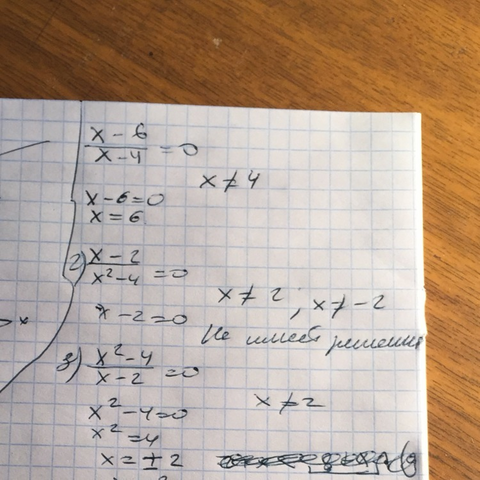 x - 6 / x - 4 = 0
x ≠ 4
x - 6 = 0
x = 6
2) x - 2 / x² - 4 = 0
x ≠ 2 ; x ≠ -2
x - 2 = 0
Не имеет решения
3) x² - 4 / x - 2 = 0
x ≠ 2
x² - 4 = 0
x² = 4
x = ± 2
x